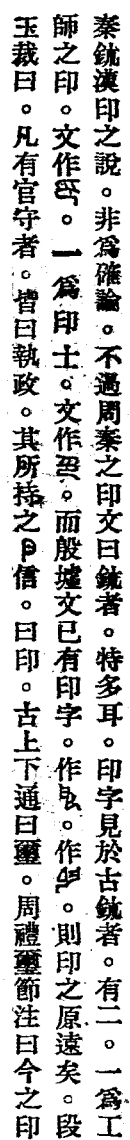 秦鈢漢印之說。非爲確論。不過周秦之印文曰鈢者。特多耳。印字見於古鈢者。有二。一爲工
師之印。文作。一爲印士。文作。而殷墟文已有印字。作。作。則印之原遠矣。段
玉裁曰。凡有官守者。皆曰執政。其所持之卩信。曰印。古上下通曰璽。周禮璽節注曰今之印